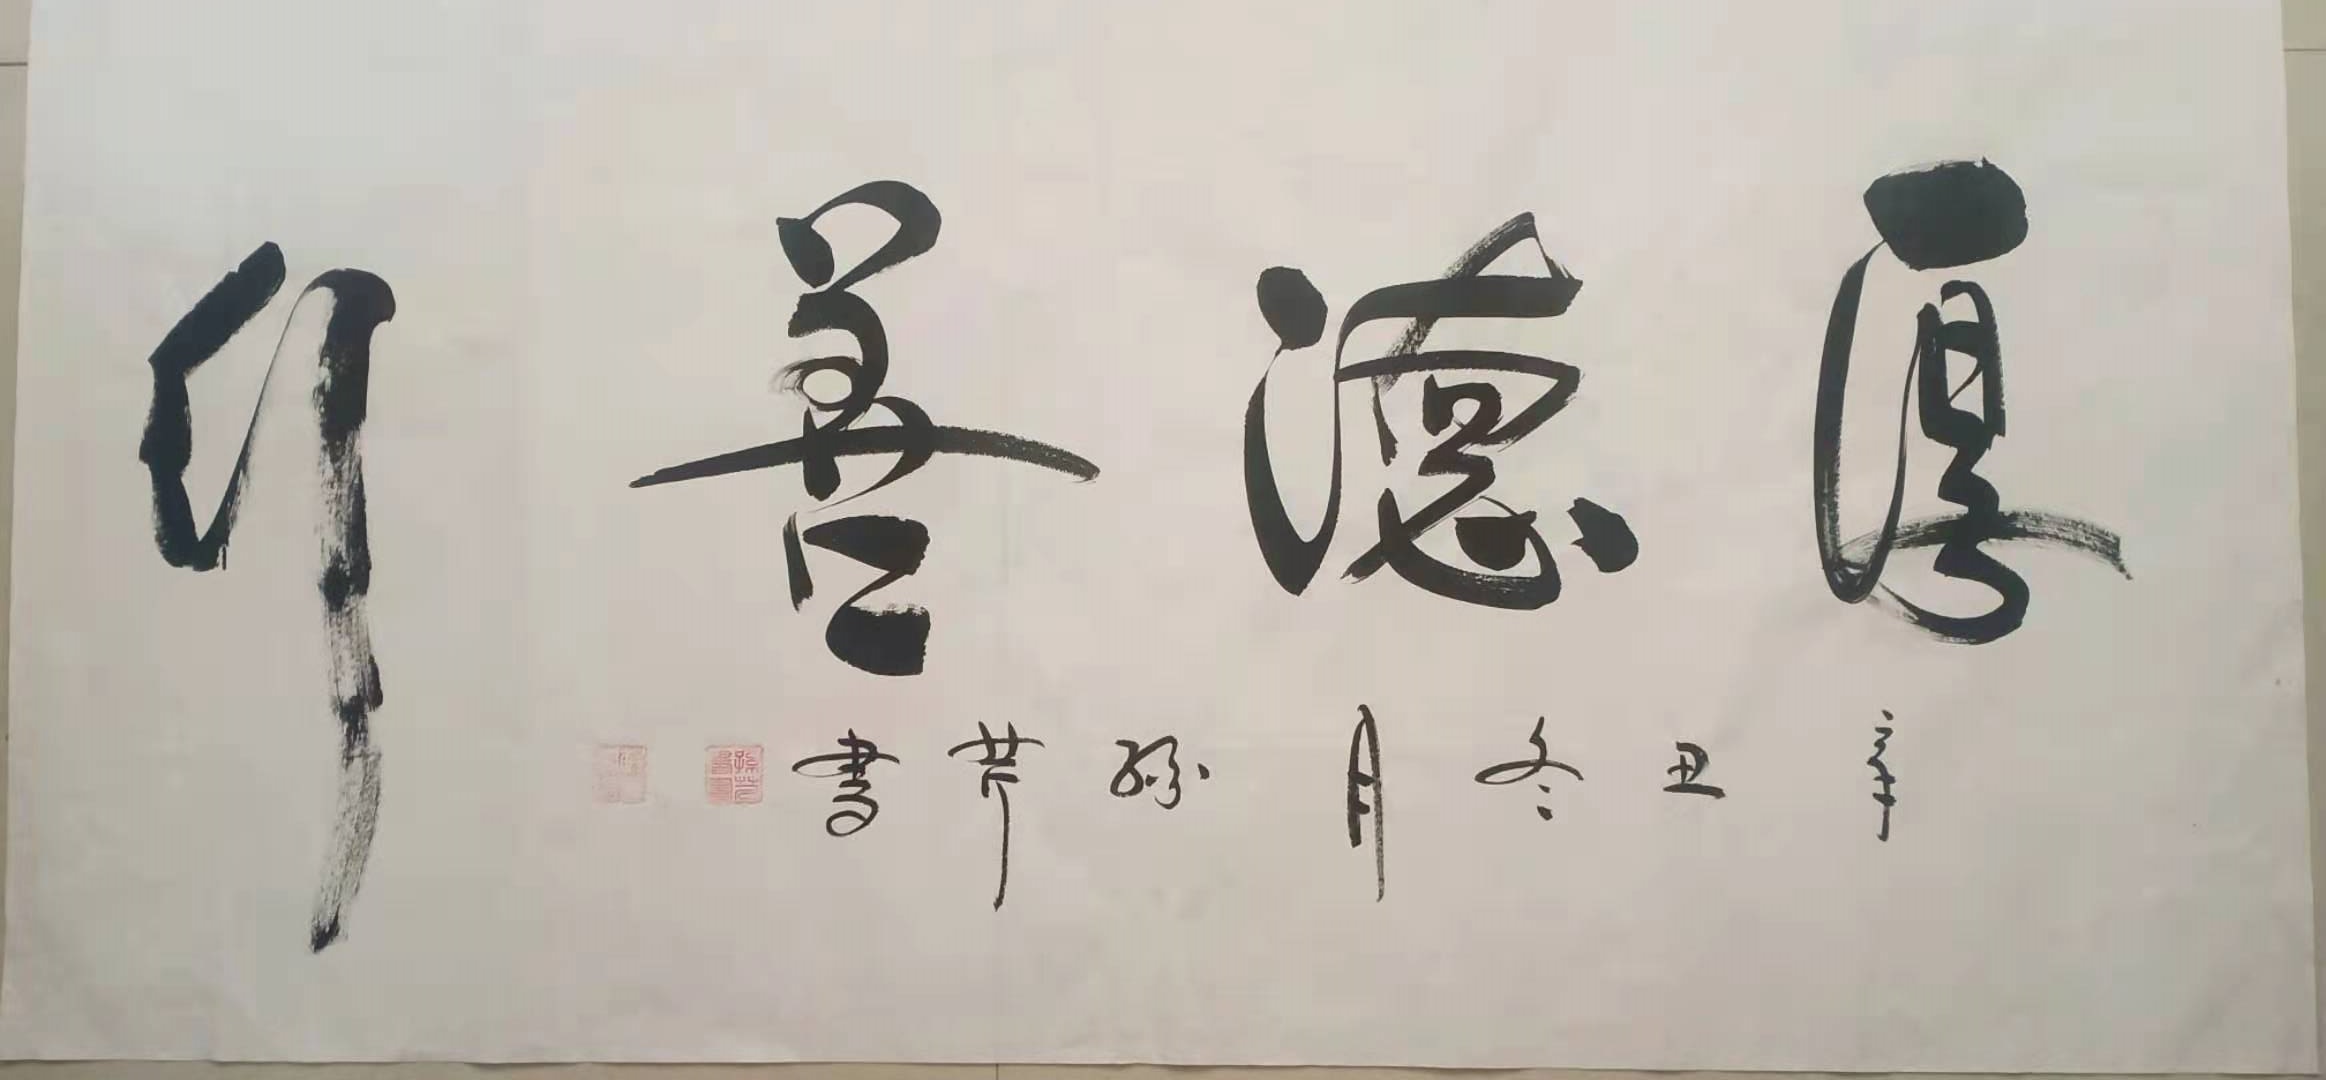 厚德善行
辛丑冬月孙芹書